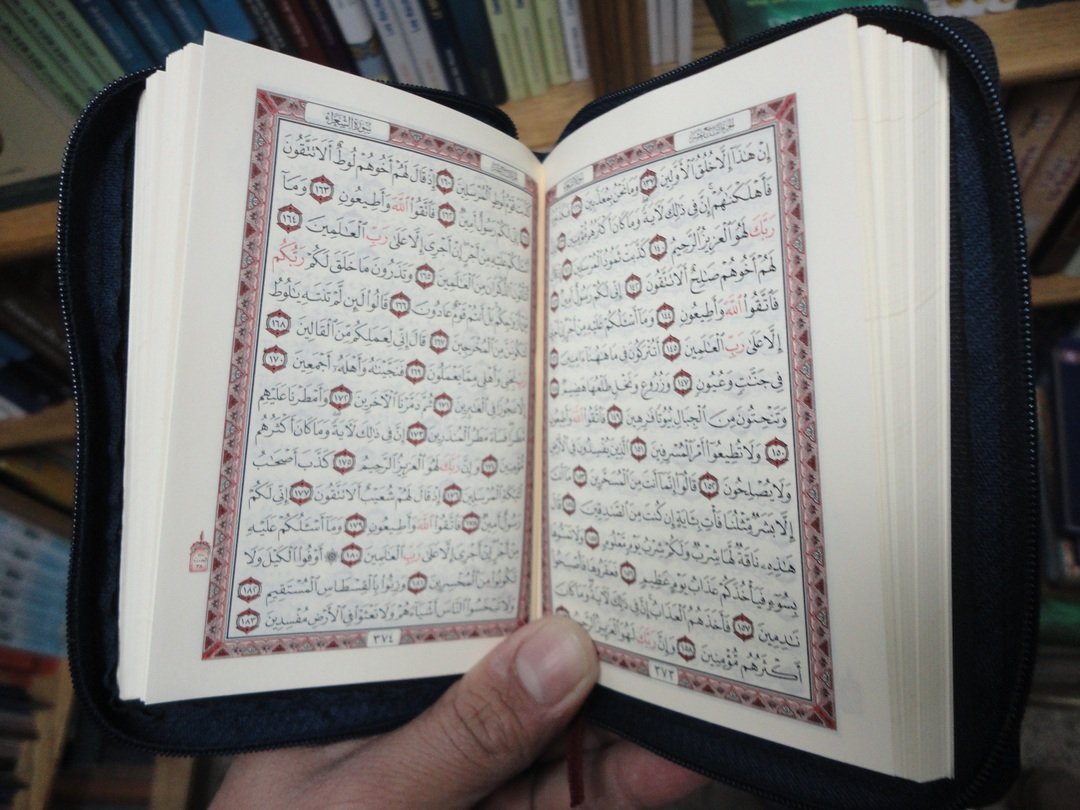 الجزء التاسع عشر
إِنْ هَٰذَا إِلَّا خُلُقُ الْأَوَّلِينَ ١٣٧ وَمَا نَحْنُ بِمُعَذَّبِينَ ١٣٨
فَأَهْلَكْنَٰهُمْ إِنَّ فِي ذَٰلِكَ لَآيَةً وَمَا كَانَ أَكْثَرُهُم مُّؤْمِنِينَ
رَبَّكَ لَهُوَ الْعَزِيزُ الرَّحِيمُ ١٤٠ كَذَّبَتْ ثَمُودُ الْمُرْسَلِينَ
لَهُمْ أَخُوهُمْ صَٰلِحٌ أَلَا تَتَّقُونَ ١٤٢ إِنِّي لَكُمْ رَسُولٌ أَمِينٌ
فَاتَّقُوا اللَّهَ وَأَطِيعُونِ ١٤٤ وَمَا أَسْـَٔلُكُمْ عَلَيْهِ مِنْ أَجْرٍ إِنْ
إِلَّا عَلَىٰ رَبِّ الْعَٰلَمِينَ ١٤٥ أَتُتْرَكُونَ فِي مَا هَٰهُنَا ءَامِنِينَ
فِي جَنَّٰتٍ وَعُيُونٍ ١٤٧ وَزُرُوعٍ وَنَخْلٍ طَلْعُهَا هَضِيمٌ
وَتَنْحِتُونَ مِنَ الْجِبَالِ بُيُوتًا فَٰرِهِينَ ١٤٩ فَاتَّقُوا اللَّهَ وَأَطِيعُونِ
١٥٠ وَلَا تُطِيعُوا أَمْرَ الْمُسْرِفِينَ ١٥١ الَّذِينَ يُفْسِدُونَ فِي الْأَرْضِ
وَلَا يُصْلِحُونَ ١٥٢ قَالُوا إِنَّمَا أَنتَ مِنَ الْمُسَحَّرِينَ ١٥٣ مَا أَنتَ
إِلَّا بَشَرٌ مِّثْلُنَا فَأْتِ بِـَٔايَةٍ إِن كُنتَ مِنَ الصَّٰدِقِينَ ١٥٤ قَالَ
هَٰذِهِ نَاقَةٌ لَّهَا شِرْبٌ وَلَكُمْ شِرْبُ يَوْمٍ مَّعْلُومٍ ١٥٥ وَلَا تَمَسُّوهَا
بِسُوءٍ فَيَأْخُذَكُمْ عَذَابُ يَوْمٍ عَظِيمٍ ١٥٦ فَعَقَرُوهَا فَأَصْبَحُوا
نَٰدِمِينَ ١٥٧ فَأَخَذَهُمُ الْعَذَابُ إِنَّ فِي ذَٰلِكَ لَآيَةً وَمَا كَانَ
أَكْثَرُهُم مُّؤْمِنِينَ ١٥٨ وَإِنَّ رَبَّكَ لَهُوَ الْعَزِيزُ الرَّحِيمُ
٣٧٣
سُورَةُ الشُّعَرَاءِ
كَذَّبَتْ قَوْمُ لُوطٍ الْمُرْسَلِينَ ١٦٠ إِذْ قَالَ لَهُمْ أَخُوهُمْ لُوطٌ أَلَا تَتَّقُونَ
إِنِّي لَكُمْ رَسُولٌ أَمِينٌ ١٦٢ فَاتَّقُوا اللَّهَ وَأَطِيعُونِ ١٦٣ وَمَا
أَسْـَٔلُكُمْ عَلَيْهِ مِنْ أَجْرٍ إِنْ أَجْرِيَ إِلَّا عَلَىٰ رَبِّ الْعَٰلَمِينَ ١٦٤
أَتَأْتُونَ الذُّكْرَانَ مِنَ الْعَٰلَمِينَ ١٦٥ وَتَذَرُونَ مَا خَلَقَ لَكُمْ رَبُّكُم
مِّنْ أَزْوَٰجِكُم بَلْ أَنتُمْ قَوْمٌ عَادُونَ ١٦٦ قَالُوا لَئِن لَّمْ تَنتَهِ يَٰلُوطُ
لَتَكُونَنَّ مِنَ الْمُخْرَجِينَ ١٦٧ قَالَ إِنِّي لِعَمَلِكُم مِّنَ الْقَالِينَ ١٦٨
رَبِّ نَجِّنِي وَأَهْلِي مِمَّا يَعْمَلُونَ ١٦٩ فَنَجَّيْنَٰهُ وَأَهْلَهُ أَجْمَعِينَ ١٧٠
إِلَّا عَجُوزًا فِي الْغَٰبِرِينَ ١٧١ ثُمَّ دَمَّرْنَا الْآخَرِينَ ١٧٢ وَأَمْطَرْنَا عَلَيْهِم
مَّطَرًا فَسَاءَ مَطَرُ الْمُنذَرِينَ ١٧٣ إِنَّ فِي ذَٰلِكَ لَآيَةً وَمَا كَانَ أَكْثَرُهُم
مُّؤْمِنِينَ ١٧٤ وَإِنَّ رَبَّكَ لَهُوَ الْعَزِيزُ الرَّحِيمُ ١٧٥ كَذَّبَ أَصْحَٰبُ
لْـَٔيْكَةِ الْمُرْسَلِينَ ١٧٦ إِذْ قَالَ لَهُمْ شُعَيْبٌ أَلَا تَتَّقُونَ ١٧٧ إِنِّي لَكُمْ
رَسُولٌ أَمِينٌ ١٧٨ فَاتَّقُوا اللَّهَ وَأَطِيعُونِ ١٧٩ وَمَا أَسْـَٔلُكُمْ عَلَيْهِ
مِنْ أَجْرٍ إِنْ أَجْرِيَ إِلَّا عَلَىٰ رَبِّ الْعَٰلَمِينَ ١٨٠ ۞ أَوْفُوا الْكَيْلَ وَلَا
تَكُونُوا مِنَ الْمُخْسِرِينَ ١٨١ وَزِنُوا بِالْقِسْطَاسِ الْمُسْتَقِيمِ ١٨٢
وَلَا تَبْخَسُوا النَّاسَ أَشْيَاءَهُمْ وَلَا تَعْثَوْا فِي الْأَرْضِ مُفْسِدِينَ ١٨٣
٣٧٤